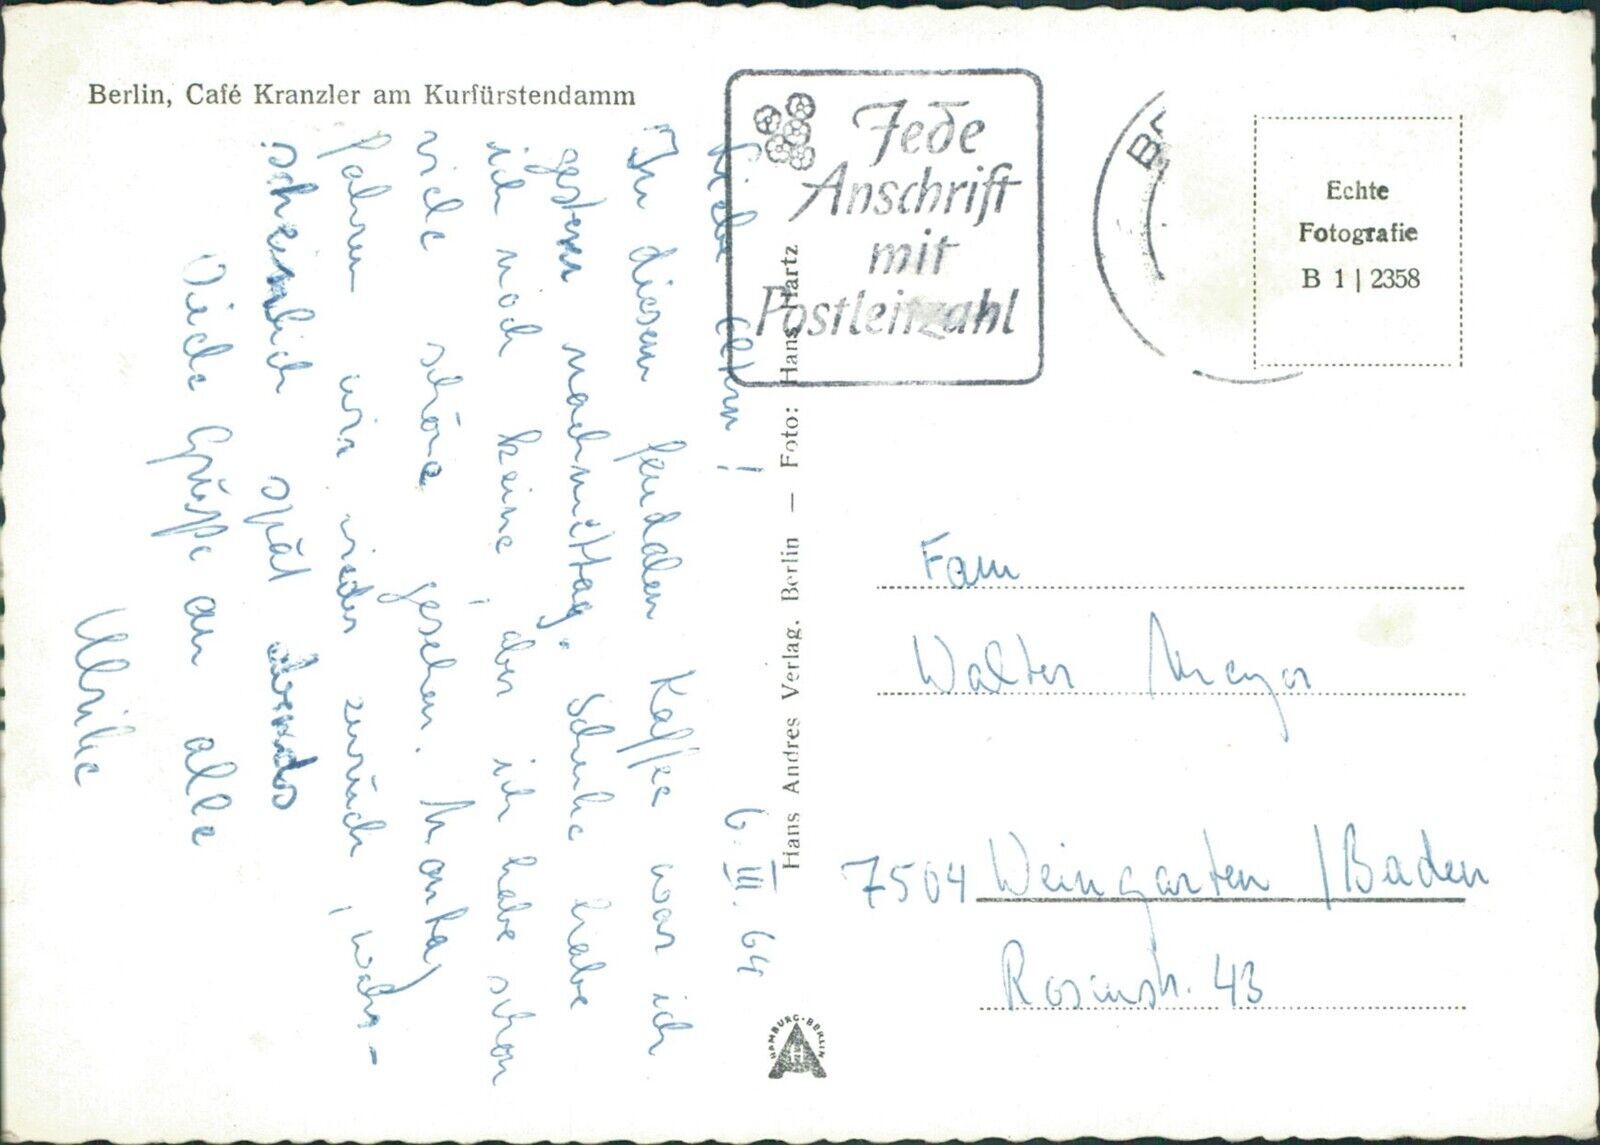 Berlin, Café Kranzler am Kurfürstendamm
Jede
Anschrift
mit
Postleitzahl
Echte
Fotografie
B 1 | 2358
6. III. 64
Liebe Eltern!
In diesem feudalen Kaffee war ich
gestern nachmittag. Schuhe habe
ich noch keine, aber ich habe schon
viele schöne gesehen. Montag
fahren wir wieder zurück, wahr-
scheinlich spät abends
Viele Grüße an alle
Ulrike
Hans Andres Verlag, Berlin — Foto: Hans Hartz
HAMBURG·BERLIN
Fam
Walter Meyer
7504 Weingarten / Baden
Rosenstr. 43